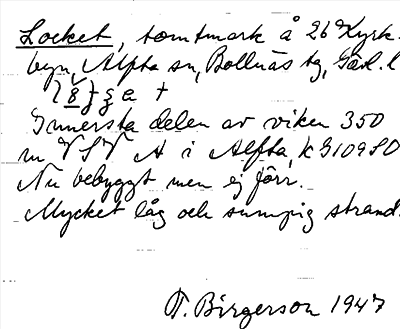 Locket, tomtmark å 26 Kyrk-
byn, Alfta sn, Bollnäs tg, Gävl. l
Innersta delen av viken 350
m VSV A i Alfta, k
Nu bebyggt men ej förr.
Mycket låg och sumpig strand.
T. Birgerson 1947